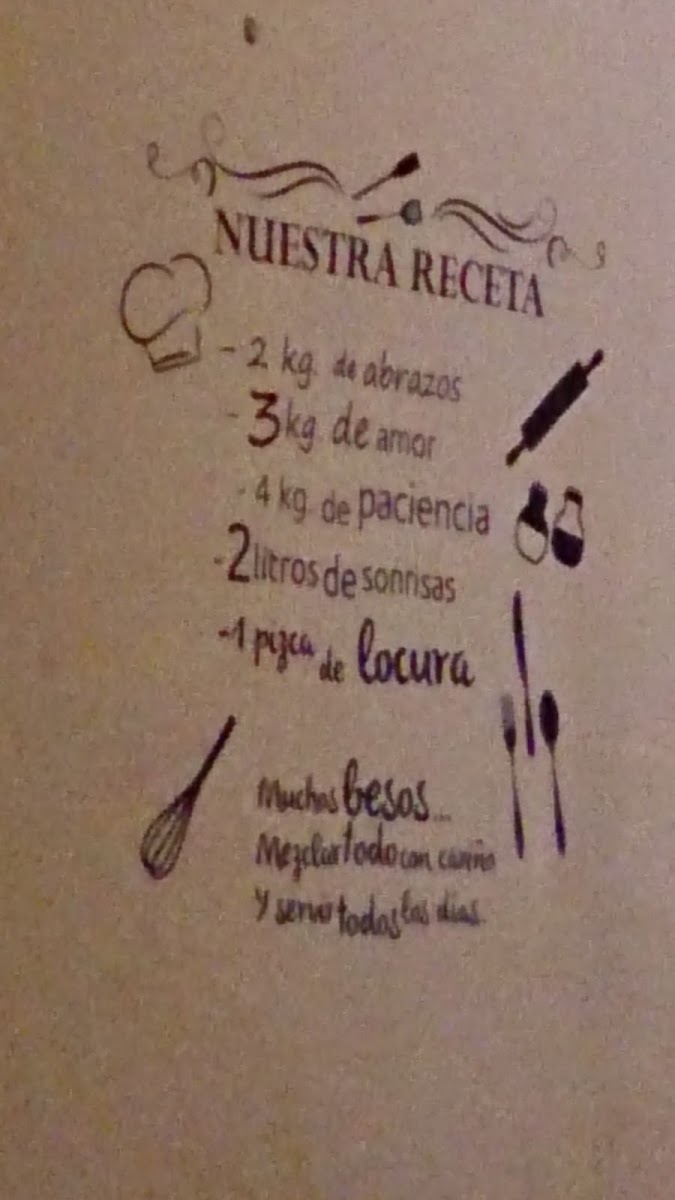 NUESTRA RECETA
-2 kg. de abrazos
-3 kg. de amor
-4 kg. de paciencia
-2 litros de sonrisas
-1 pizca de locura
Muchos besos...
Mezclar todo con cariño
Y servir todos los días.